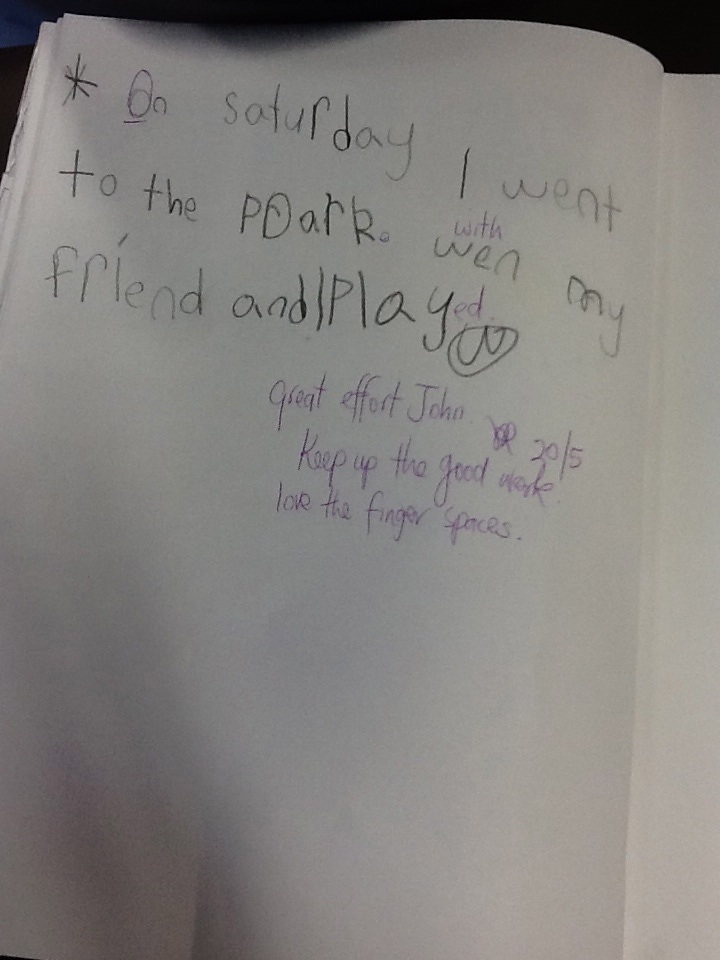 * On saturday I went
to the pOark. with wen my
friend and Played.
Great effort John 20/5
Keep up the good work.
love the finger spaces.